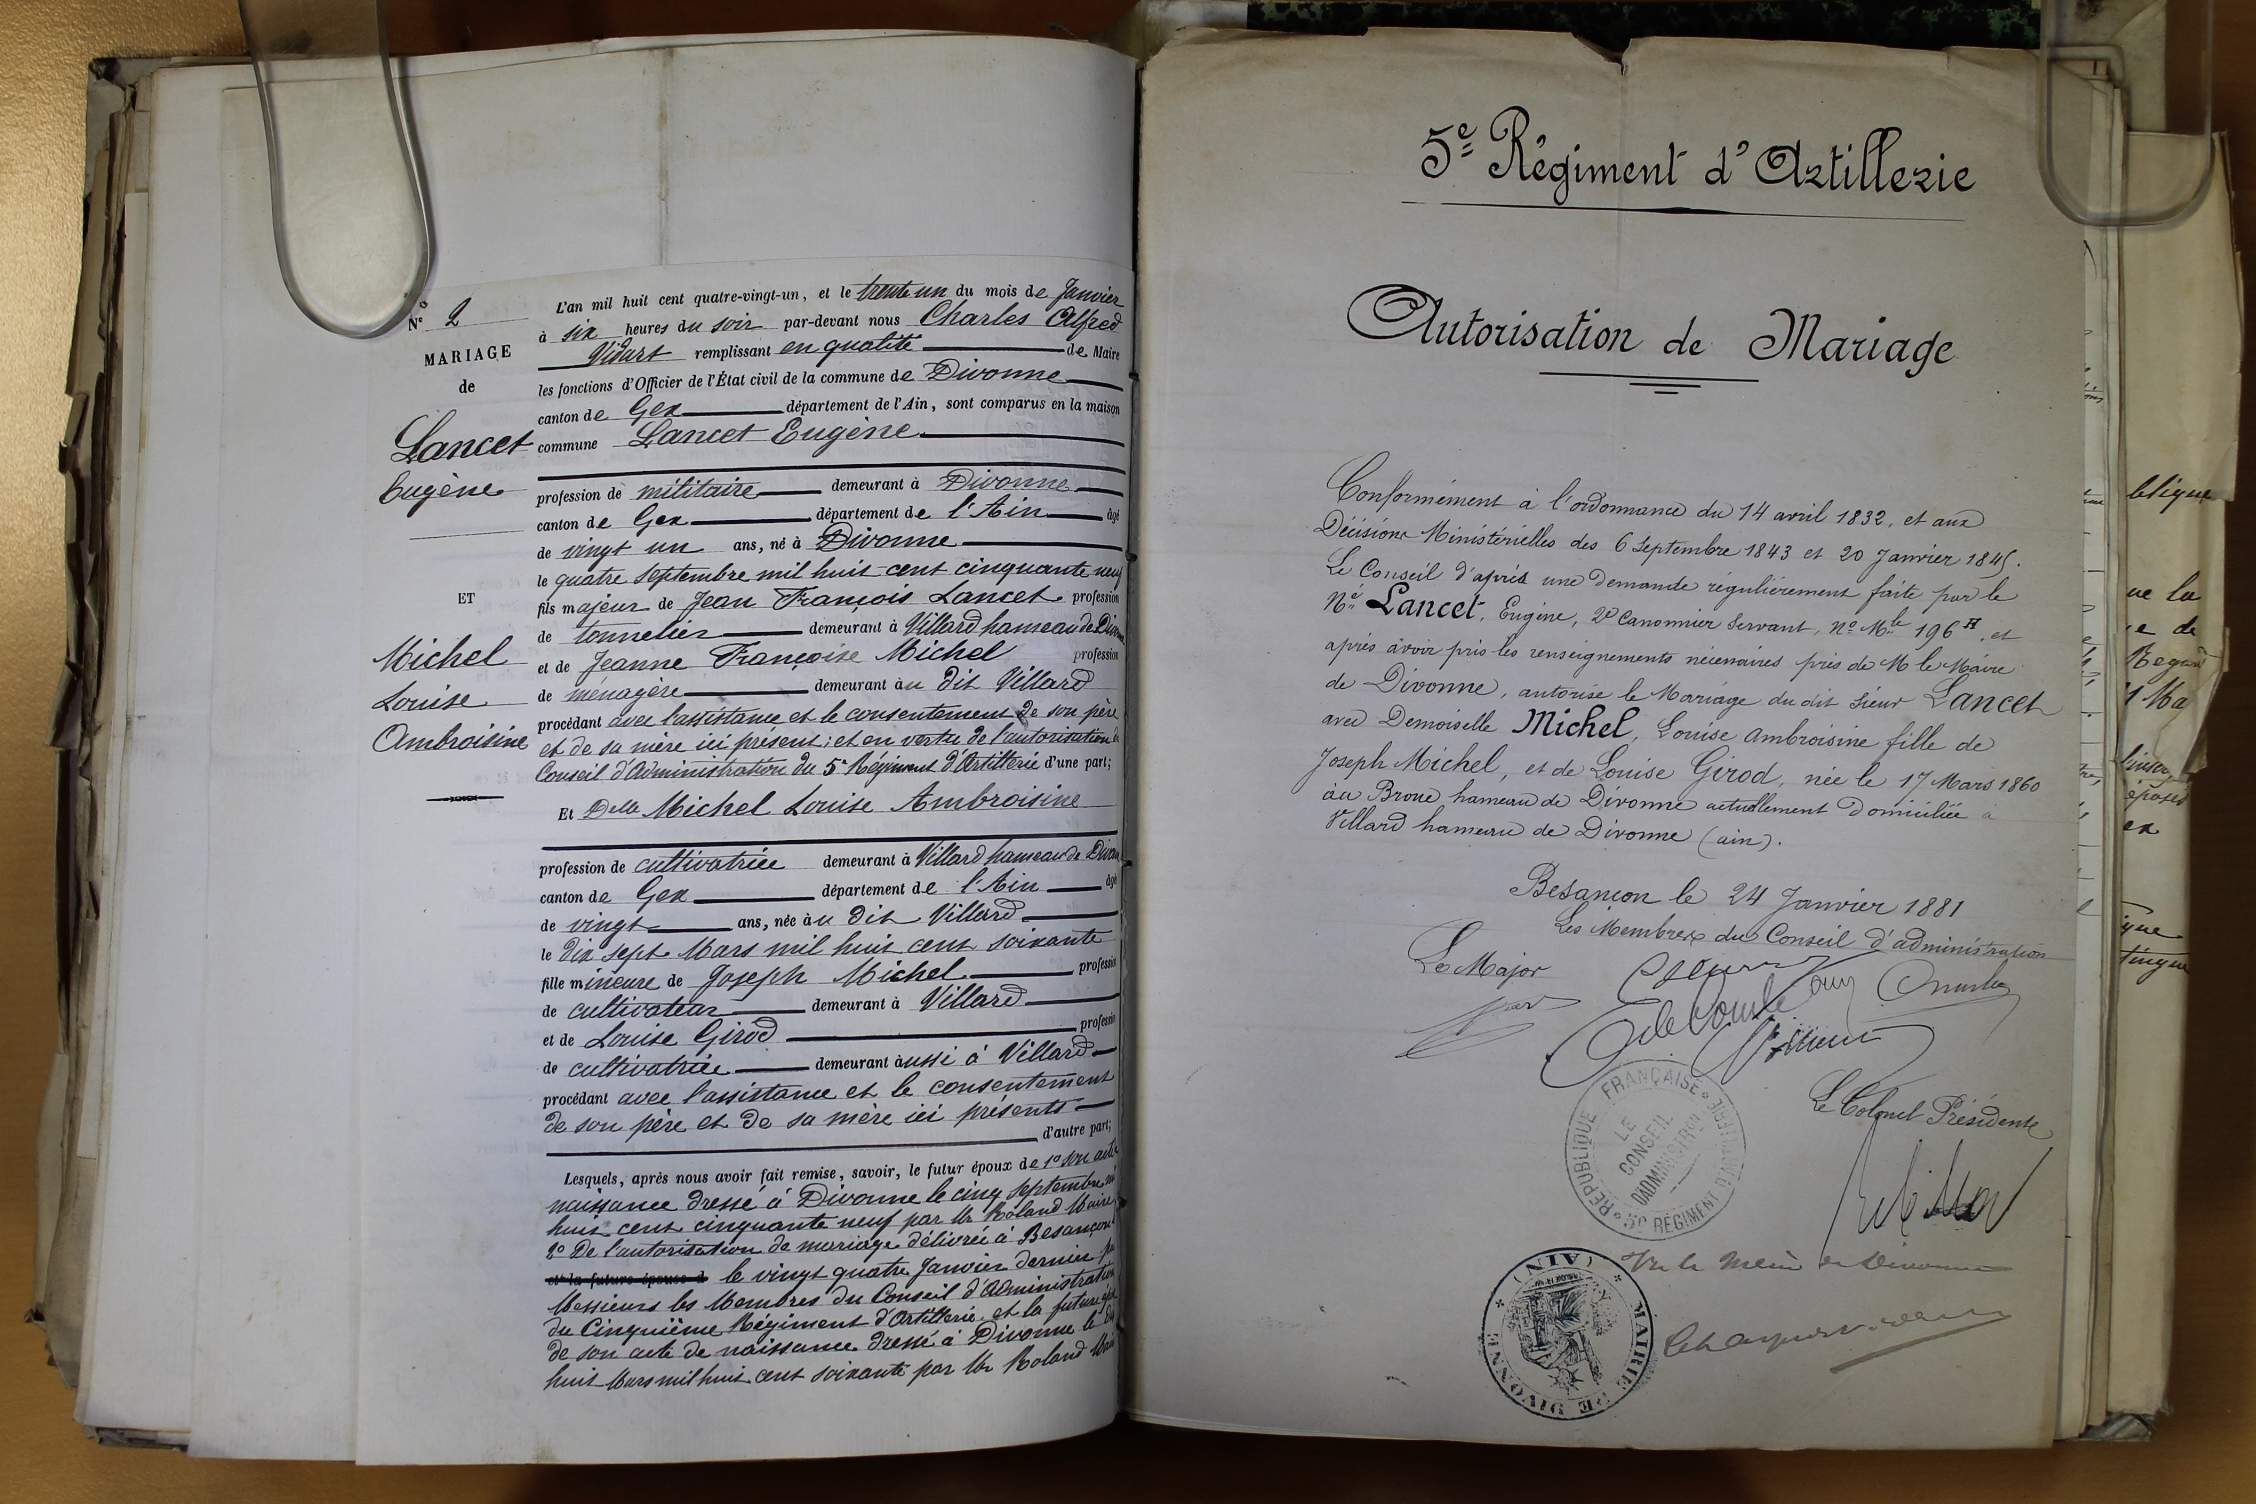 N° 2
MARIAGE
de
Lancet
Eugène
ET
Michel
Louise
Ambroisine
L'an mil huit cent quatre-vingt-un, et le trente un du mois de Janvier
à six heures du soir par-devant nous Charles Alfred
Vidart remplissant en qualité de Maire
les fonctions d'Officier de l'État civil de la commune de Divonne
canton de Gex département de l'Ain, sont comparus en la maison
commune Lancet Eugène
profession de militaire demeurant à Divonne
canton de Gex département de l'Ain âgé
de vingt un ans, né à Divonne
le quatre septembre mil huit cent cinquante neuf
fils majeur de Jean François Lancet profession
de tonnelier demeurant à Villard hameau de Divonne
et de Jeanne Françoise Michel profession
de ménagère demeurant au dit Villard
procédant avec l'assistance et le consentement de son père
et de sa mère ici présent; et en vertu de l'autorisation
Conseil d'Administration du 5e Régiment d'Artillerie d'une part;
Et Delle Michel Louise Ambroisine
profession de cultivatrice demeurant à Villard hameau de Divonne
canton de Gex département de l'Ain âgé
de vingt ans, née au dit Villard
le dix sept Mars mil huit cent soixante
fille mineure de Joseph Michel profession
de cultivateur demeurant à Villard
et de Louise Girod profession
de cultivatrice demeurant aussi à Villard
procédant avec l'assistance et le consentement
de son père et de sa mère ici présents
d'autre part;
Lesquels, après nous avoir fait remise, savoir, le futur époux de 1° son acte
naissance dressé à Divonne le cinq septembre mil
huit cent cinquante neuf par Mr Roland Maire
2° De l'autorisation de mariage délivrée à Besançon
et la future épouse d le vingt quatre Janvier dernier par
Messieurs les Membres du Conseil d'Administration
du Cinquième Régiment d'Artillerie et la future
de son acte de naissance dressé à Divonne le dix
huit Mars mil huit cent soixante par Mr Roland Maire
5e Régiment d'Artillerie
Autorisation de Mariage
Conformément à l'ordonnance du 14 avril 1832, et aux
Décisions Ministérielles des 6 Septembre 1843 et 20 Janvier 1845.
Le Conseil d'après une demande régulièrement faite par le
Né Lancet, Eugène, 2e Canonnier Servant, No Mle 196 H, et
après avoir pris les renseignements nécessaires près de M le Maire
de Divonne, autorise le Mariage du dit Sieur Lancet
avec Demoiselle Michel, Louise Ambroisine fille de
Joseph Michel, et de Louise Girod, née le 17 Mars 1860
au Broue hameau de Divonne actuellement Domiciliée à
Villard hameau de Divonne (ain).
Besançon le 24 Janvier 1881
Les Membres du Conseil d'administration
Le Major
RÉPUBLIQUE FRANÇAISE
LE
CONSEIL
D'ADMINISTRON
5E RÉGIMENT D'ARTILLERIE
Le Colonel Président
Vu le Maire de Divonne
MAIRIE DE DIVONNE (AIN)